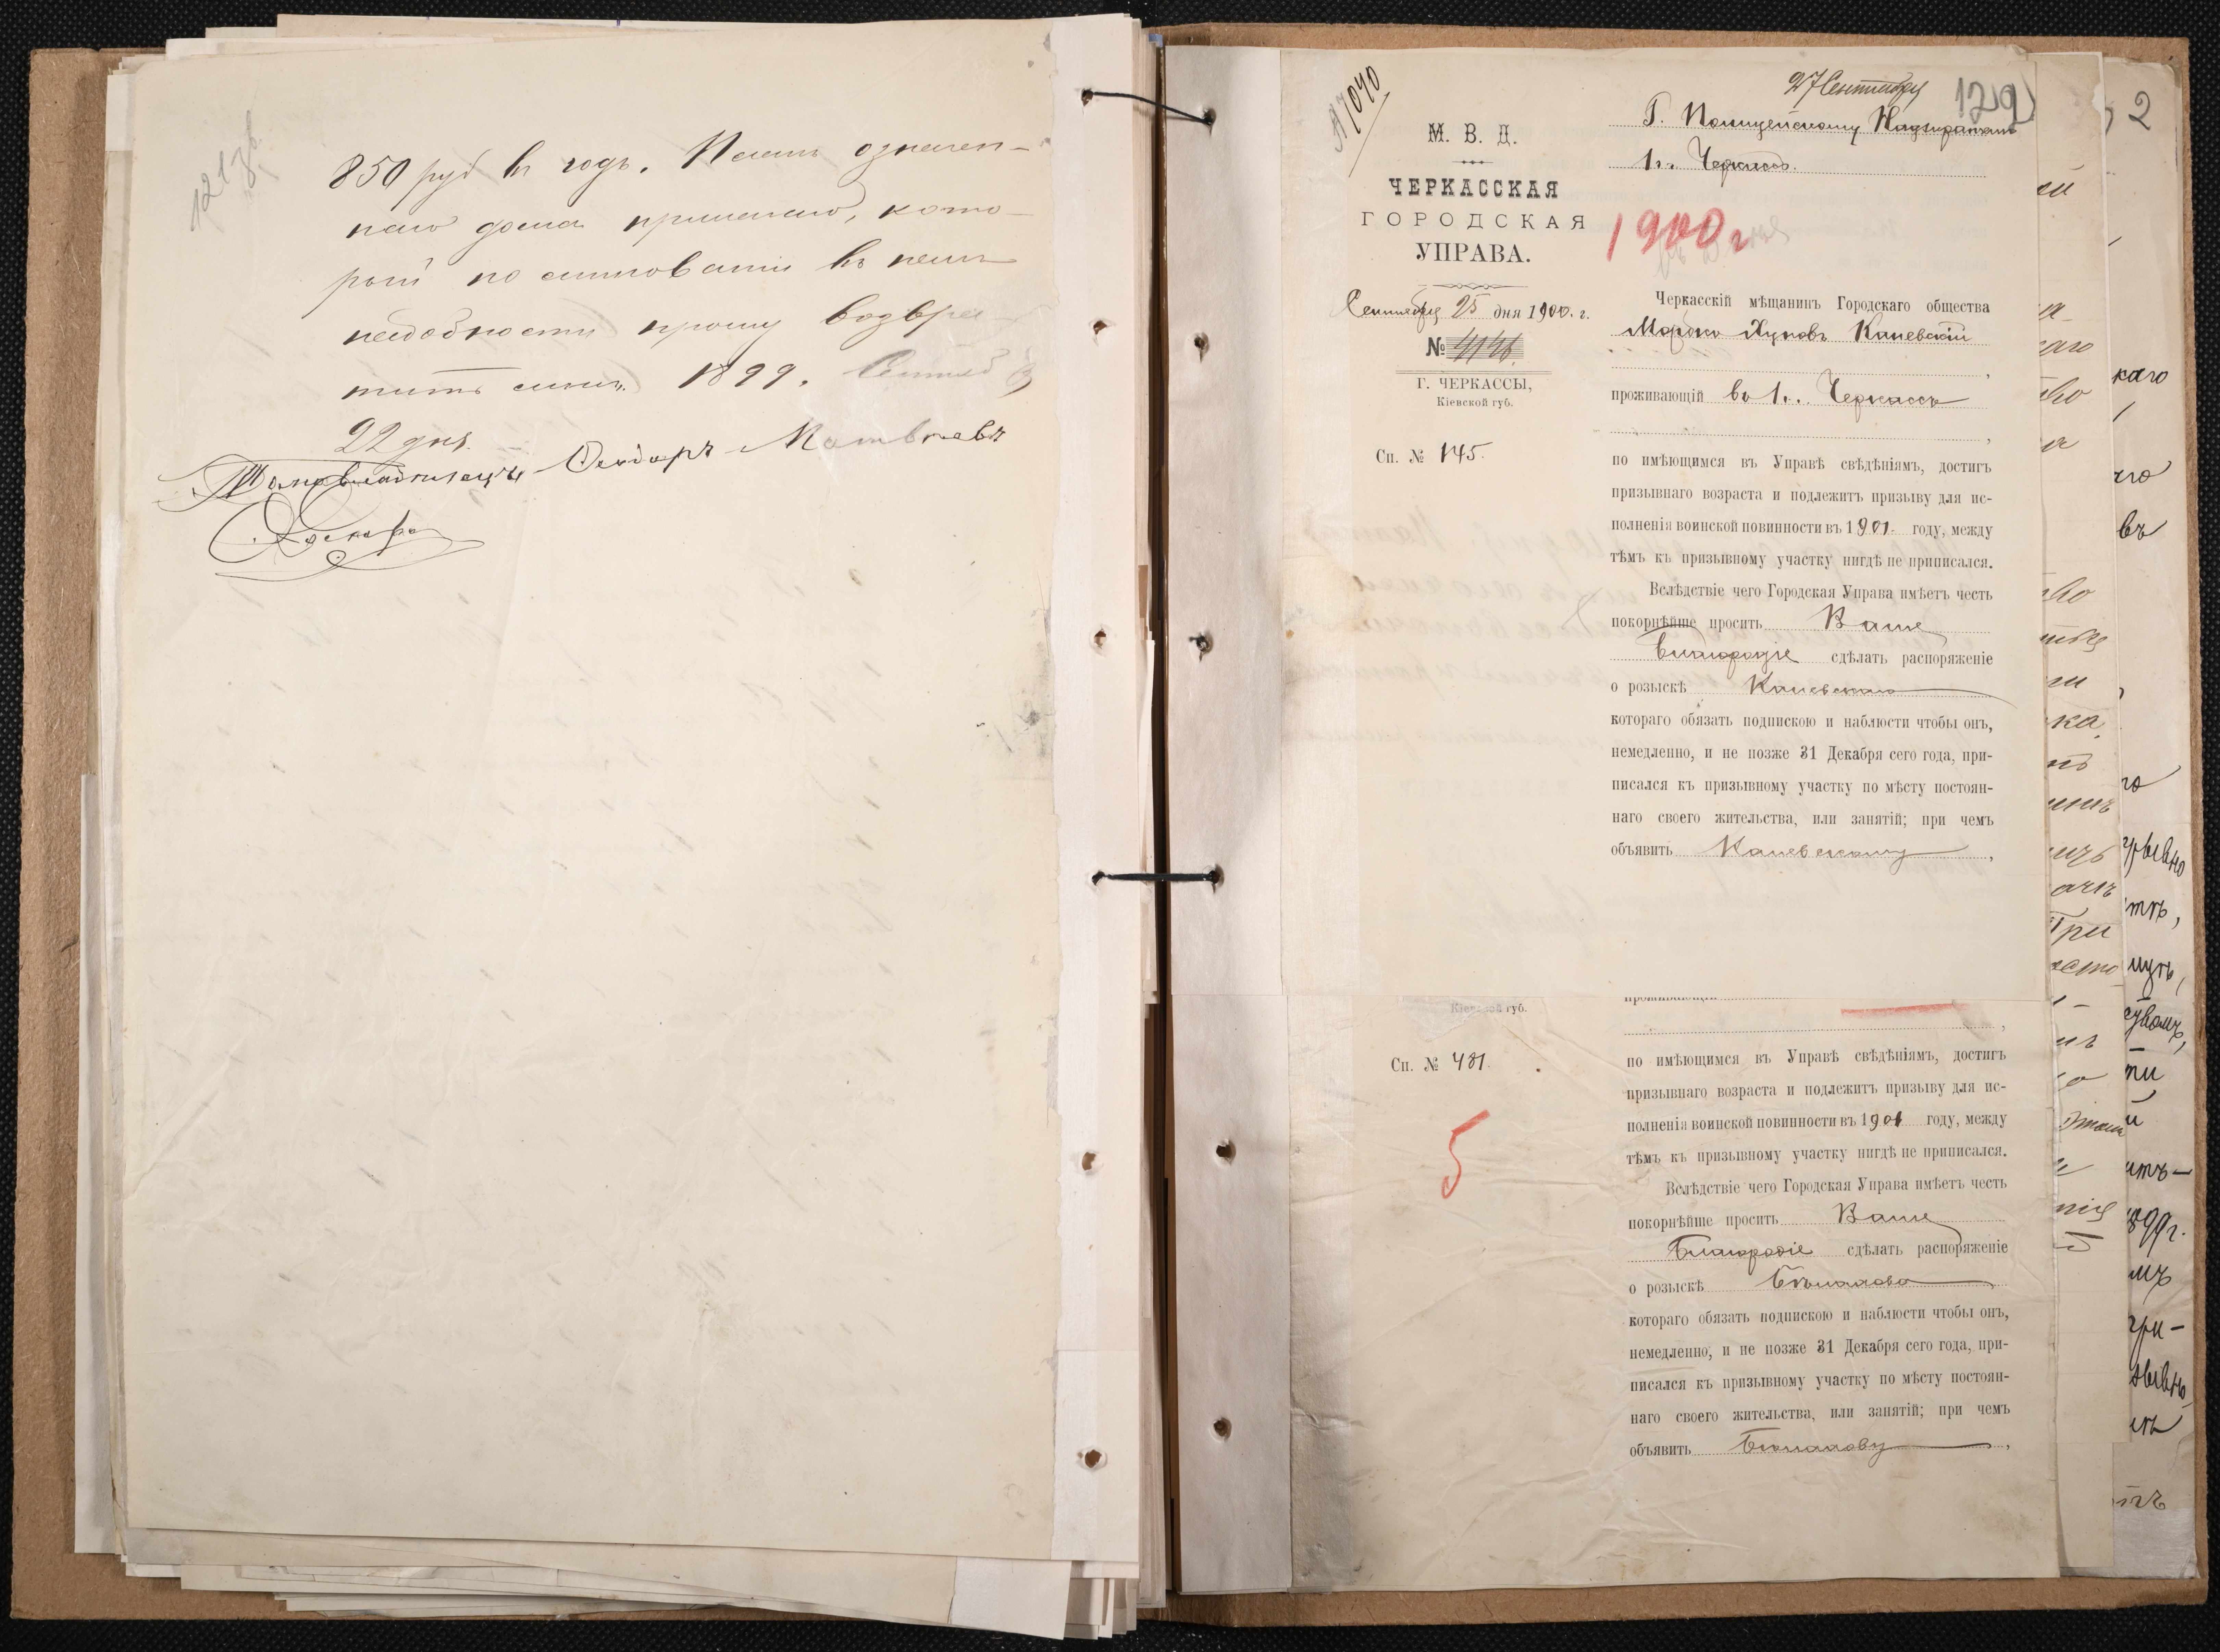 850 руб въ годъ. Планъ означен-
наго дома прилагаю, кото-
рый по миновании въ немъ
надобности прошу возвра-
тить мнѣ. 1899. Сентяб
22 дня.
Домовладѣлецъ Матвѣевъ
№7040
М. В. Д.
ЧЕРКАССКАЯ
ГОРОДСКАЯ
УПРАВА.
Сентября 25 дня 1900. г.
№ 4146
Г. ЧЕРКАССЫ,
Кіевской губ.
Сп. № 145.
27 Сентября
129
Г. Полицейскому Надзирателю
г. Черкассъ.
1900 г
Черкасскій мѣщанинъ Городскаго общества
Мордко Каневскій
проживающій въ г. Черкассы
,
по имѣющимся въ Управѣ свѣдѣніямъ, достигъ
призывнаго возраста и подлежитъ призыву для ис-
полненія воинской повинности въ 1901 году, между
тѣмъ къ призывному участку нигдѣ не приписался.
Вслѣдствіе чего Городская Управа имѣетъ честь
покорнѣйше просить Ваше
Благородіе сдѣлать распоряженіе
о розыскѣ Каневскаго
котораго обязать подпискою и наблюсти чтобы онъ,
немедленно, и не позже 31 Декабря сего года, при-
писался къ призывному участку по мѣсту постоян-
наго своего жительства, или занятій; при чемъ
объявить Каневскому ,
Кіевской губ.
Сп. № 481.
5
проживающій
,
по имѣющимся въ Управѣ свѣдѣніямъ, достигъ
призывнаго возраста и подлежитъ призыву для ис-
полненія воинской повинности въ 1901 году, между
тѣмъ къ призывному участку нигдѣ не приписался.
Вслѣдствіе чего Городская Управа имѣетъ честь
покорнѣйше просить Ваше
Благородіе сдѣлать распоряженіе
о розыскѣ
котораго обязать подпискою и наблюсти чтобы онъ,
немедленно, и не позже 31 Декабря сего года, при-
писался къ призывному участку по мѣсту постоян-
наго своего жительства, или занятій; при чемъ
объявить ,
2
каго
въ
899 г.